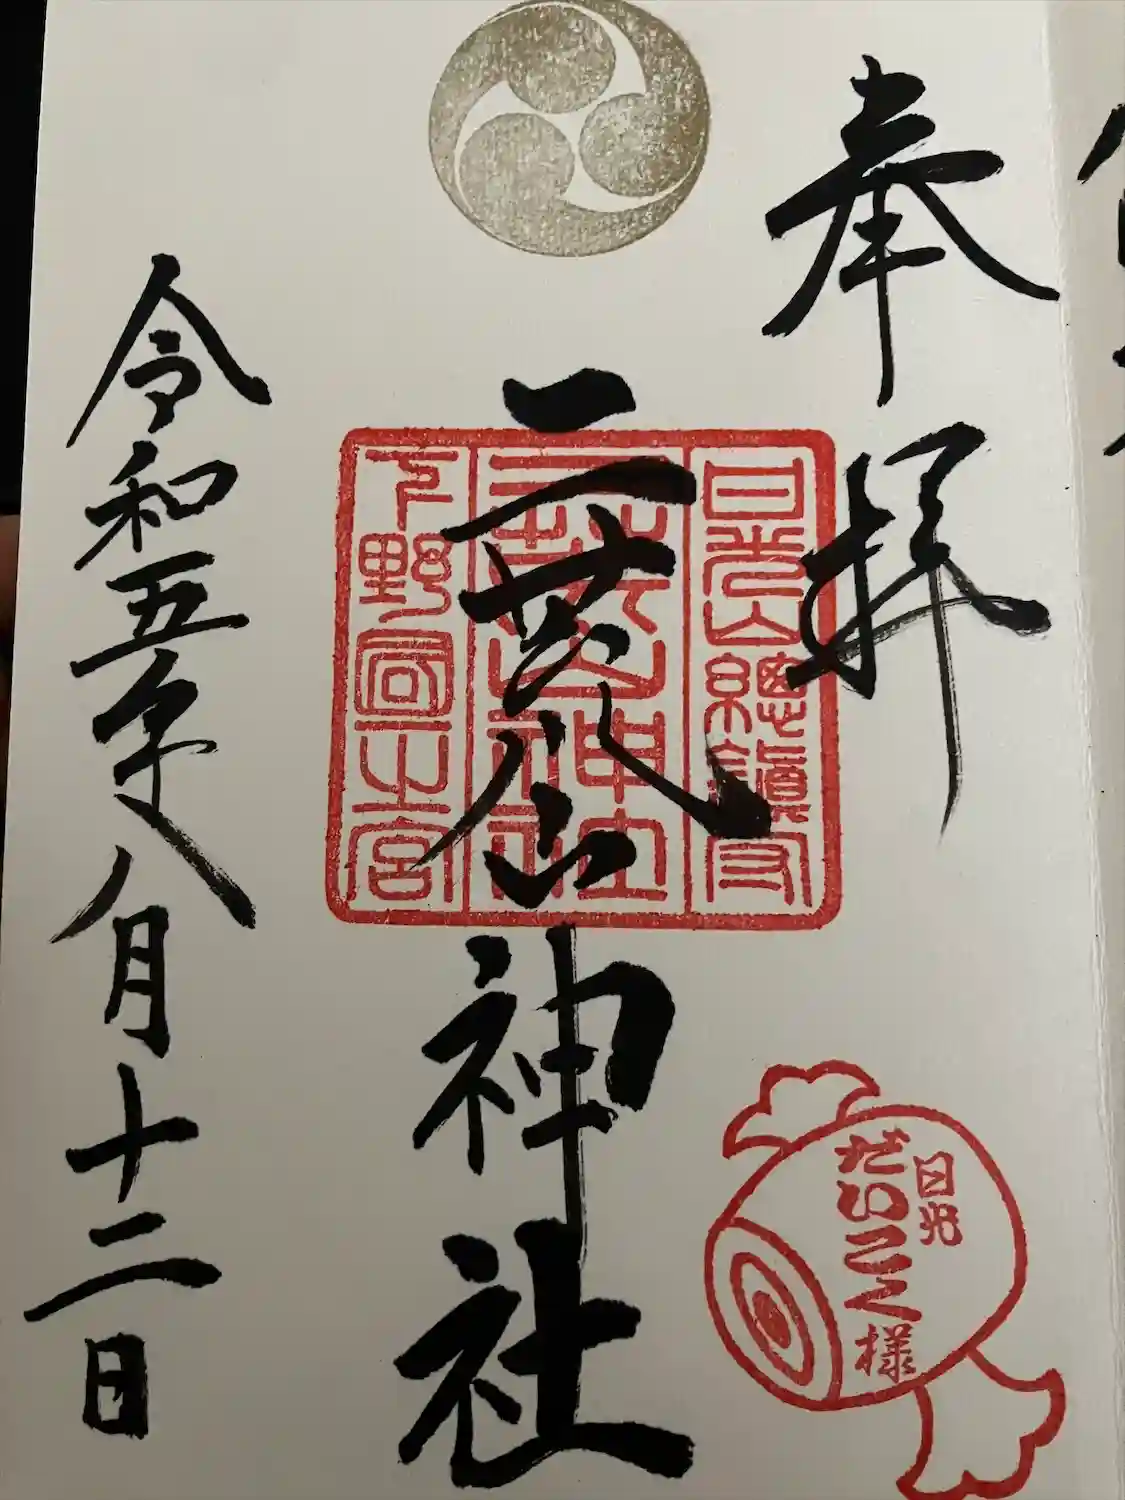 奉拝
日光山總鎮守
二荒山神社
下野國一之宮
二荒山神社
令和五年八月十二日
日光
だいこく様